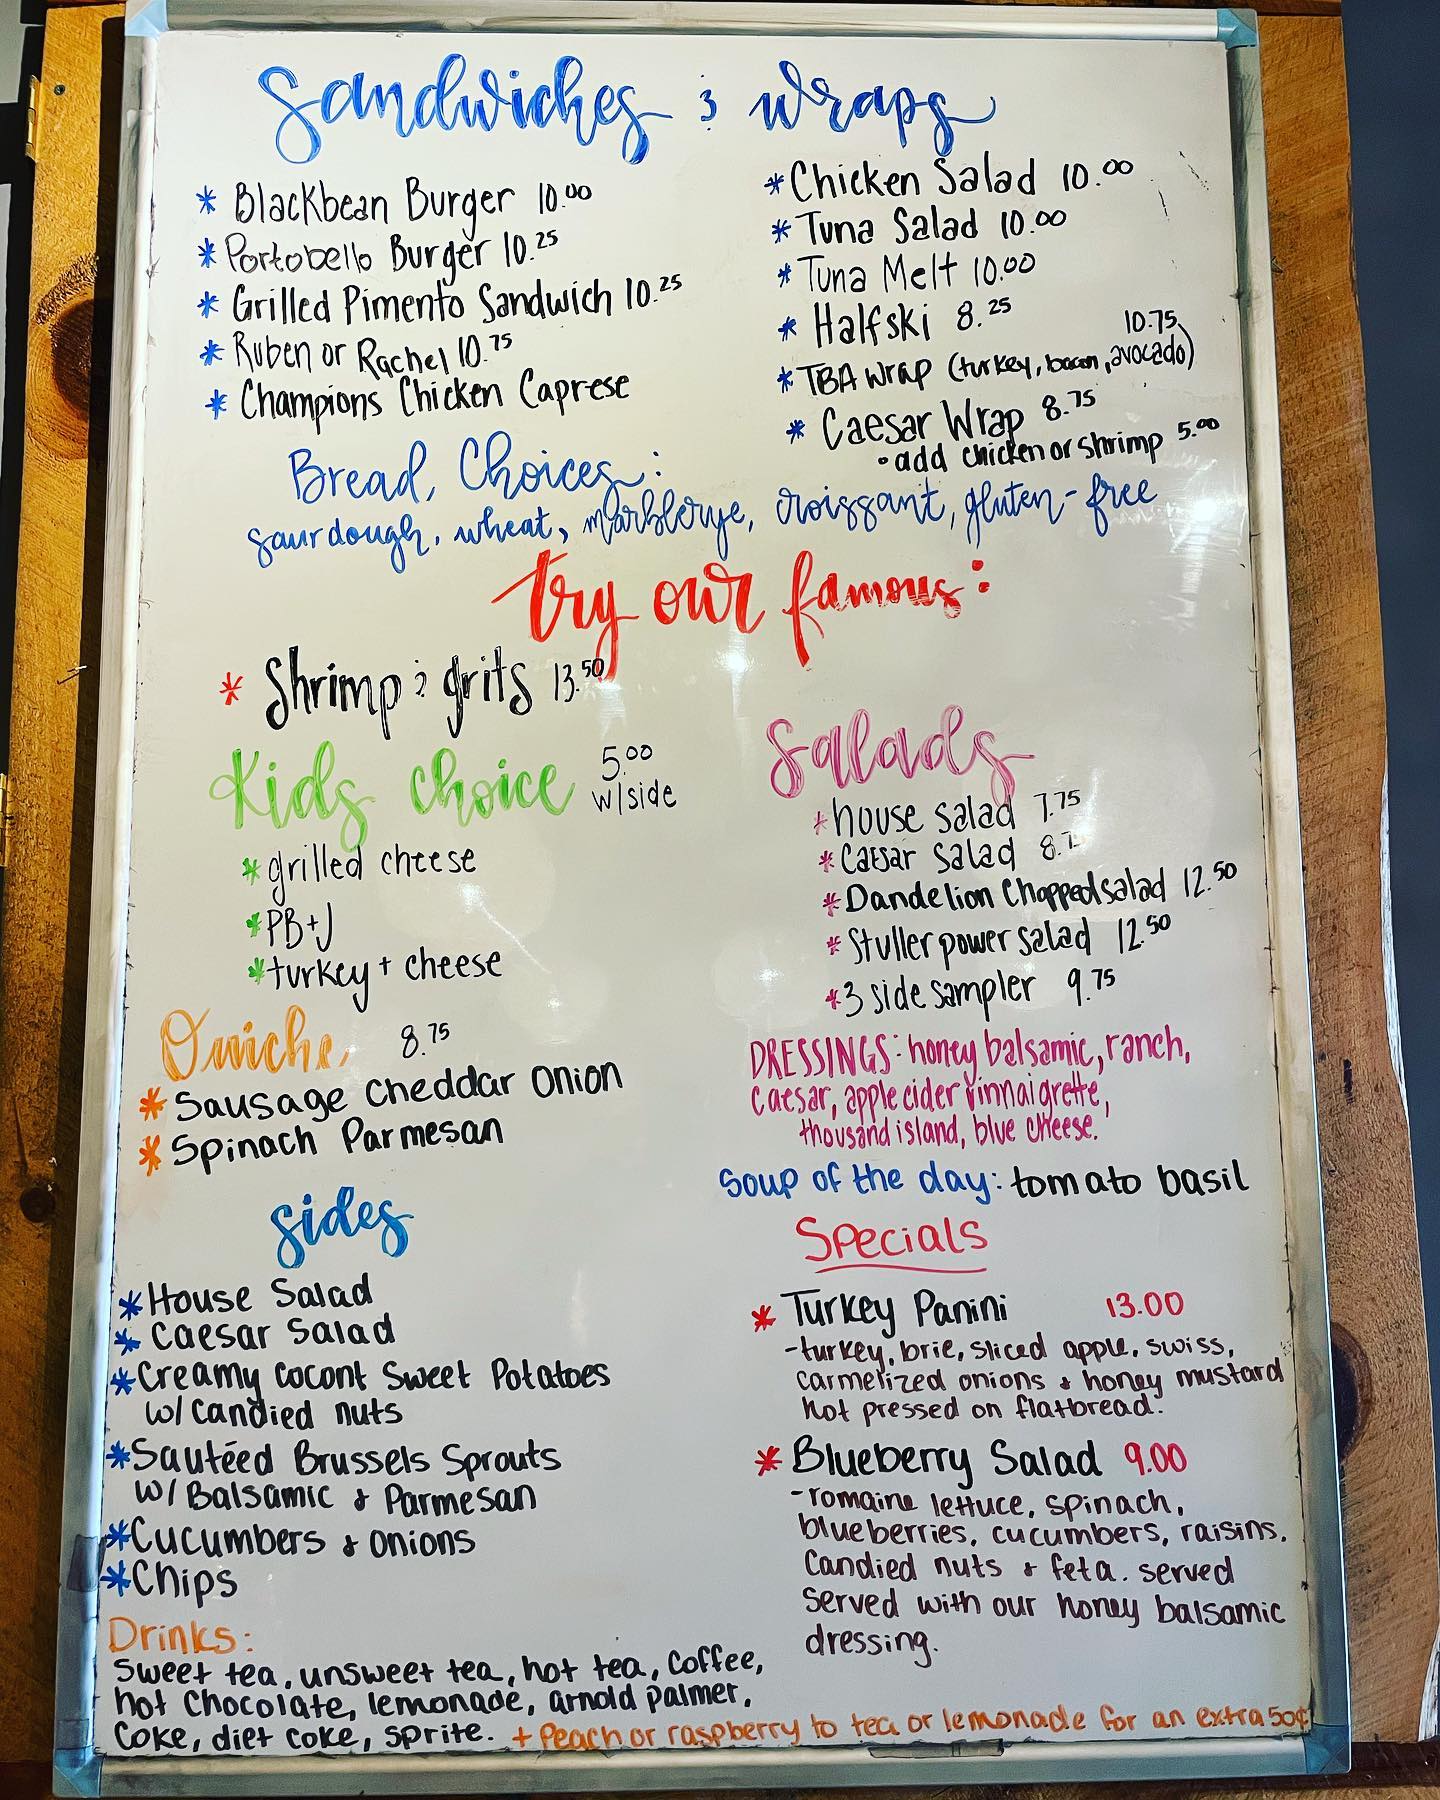 Sandwiches & wraps
* Blackbean Burger 10.00
* Portobello Burger 10.25
* Grilled Pimento Sandwich 10.25
* Ruben or Rachel 10.75
* Champions Chicken Caprese
* Chicken Salad 10.00
* Tuna Salad 10.00
* Tuna Melt 10.00
* Halfski 8.25
* TBA wrap (turkey, bacon, avocado) 10.75
* Caesar Wrap 8.75
• add chicken or shrimp 5.00
Bread Choices:
sourdough, wheat, marblerye, croissant, gluten-free
try our famous:
* Shrimp & grits 13.50
Kids choice 5.00
w/side
* grilled cheese
* PB+J
* turkey + cheese
Quiche 8.75
* Sausage Cheddar Onion
* Spinach Parmesan
Salads
* house salad 7.75
* Caesar Salad
* Dandelion Chopped salad 12.50
* Stuller power salad 12.50
* 3 side sampler 9.75
DRESSINGS: honey balsamic, ranch,
Caesar, apple cider vinnaigrette,
thousand island, blue cheese.
Soup of the day: tomato basil
sides
* House Salad
* Caesar Salad
* Creamy Cocont Sweet Potatoes
w/ Candied nuts
* Sautéed Brussels Sprouts
w/ Balsamic & Parmesan
* Cucumbers & onions
* Chips
Specials
* Turkey Panini 13.00
- turkey, brie, sliced apple, swiss,
carmelized onions & honey mustard
hot pressed on flatbread.
* Blueberry Salad 9.00
- romaine lettuce, spinach,
blueberries, cucumbers, raisins,
Candied nuts & feta. served
served with our honey balsamic
dressing.
Drinks:
sweet tea, unsweet tea, hot tea, coffee,
hot chocolate, lemonade, arnold palmer,
Coke, diet coke, sprite. + Peach or raspberry to tea or lemonade for an extra 50¢